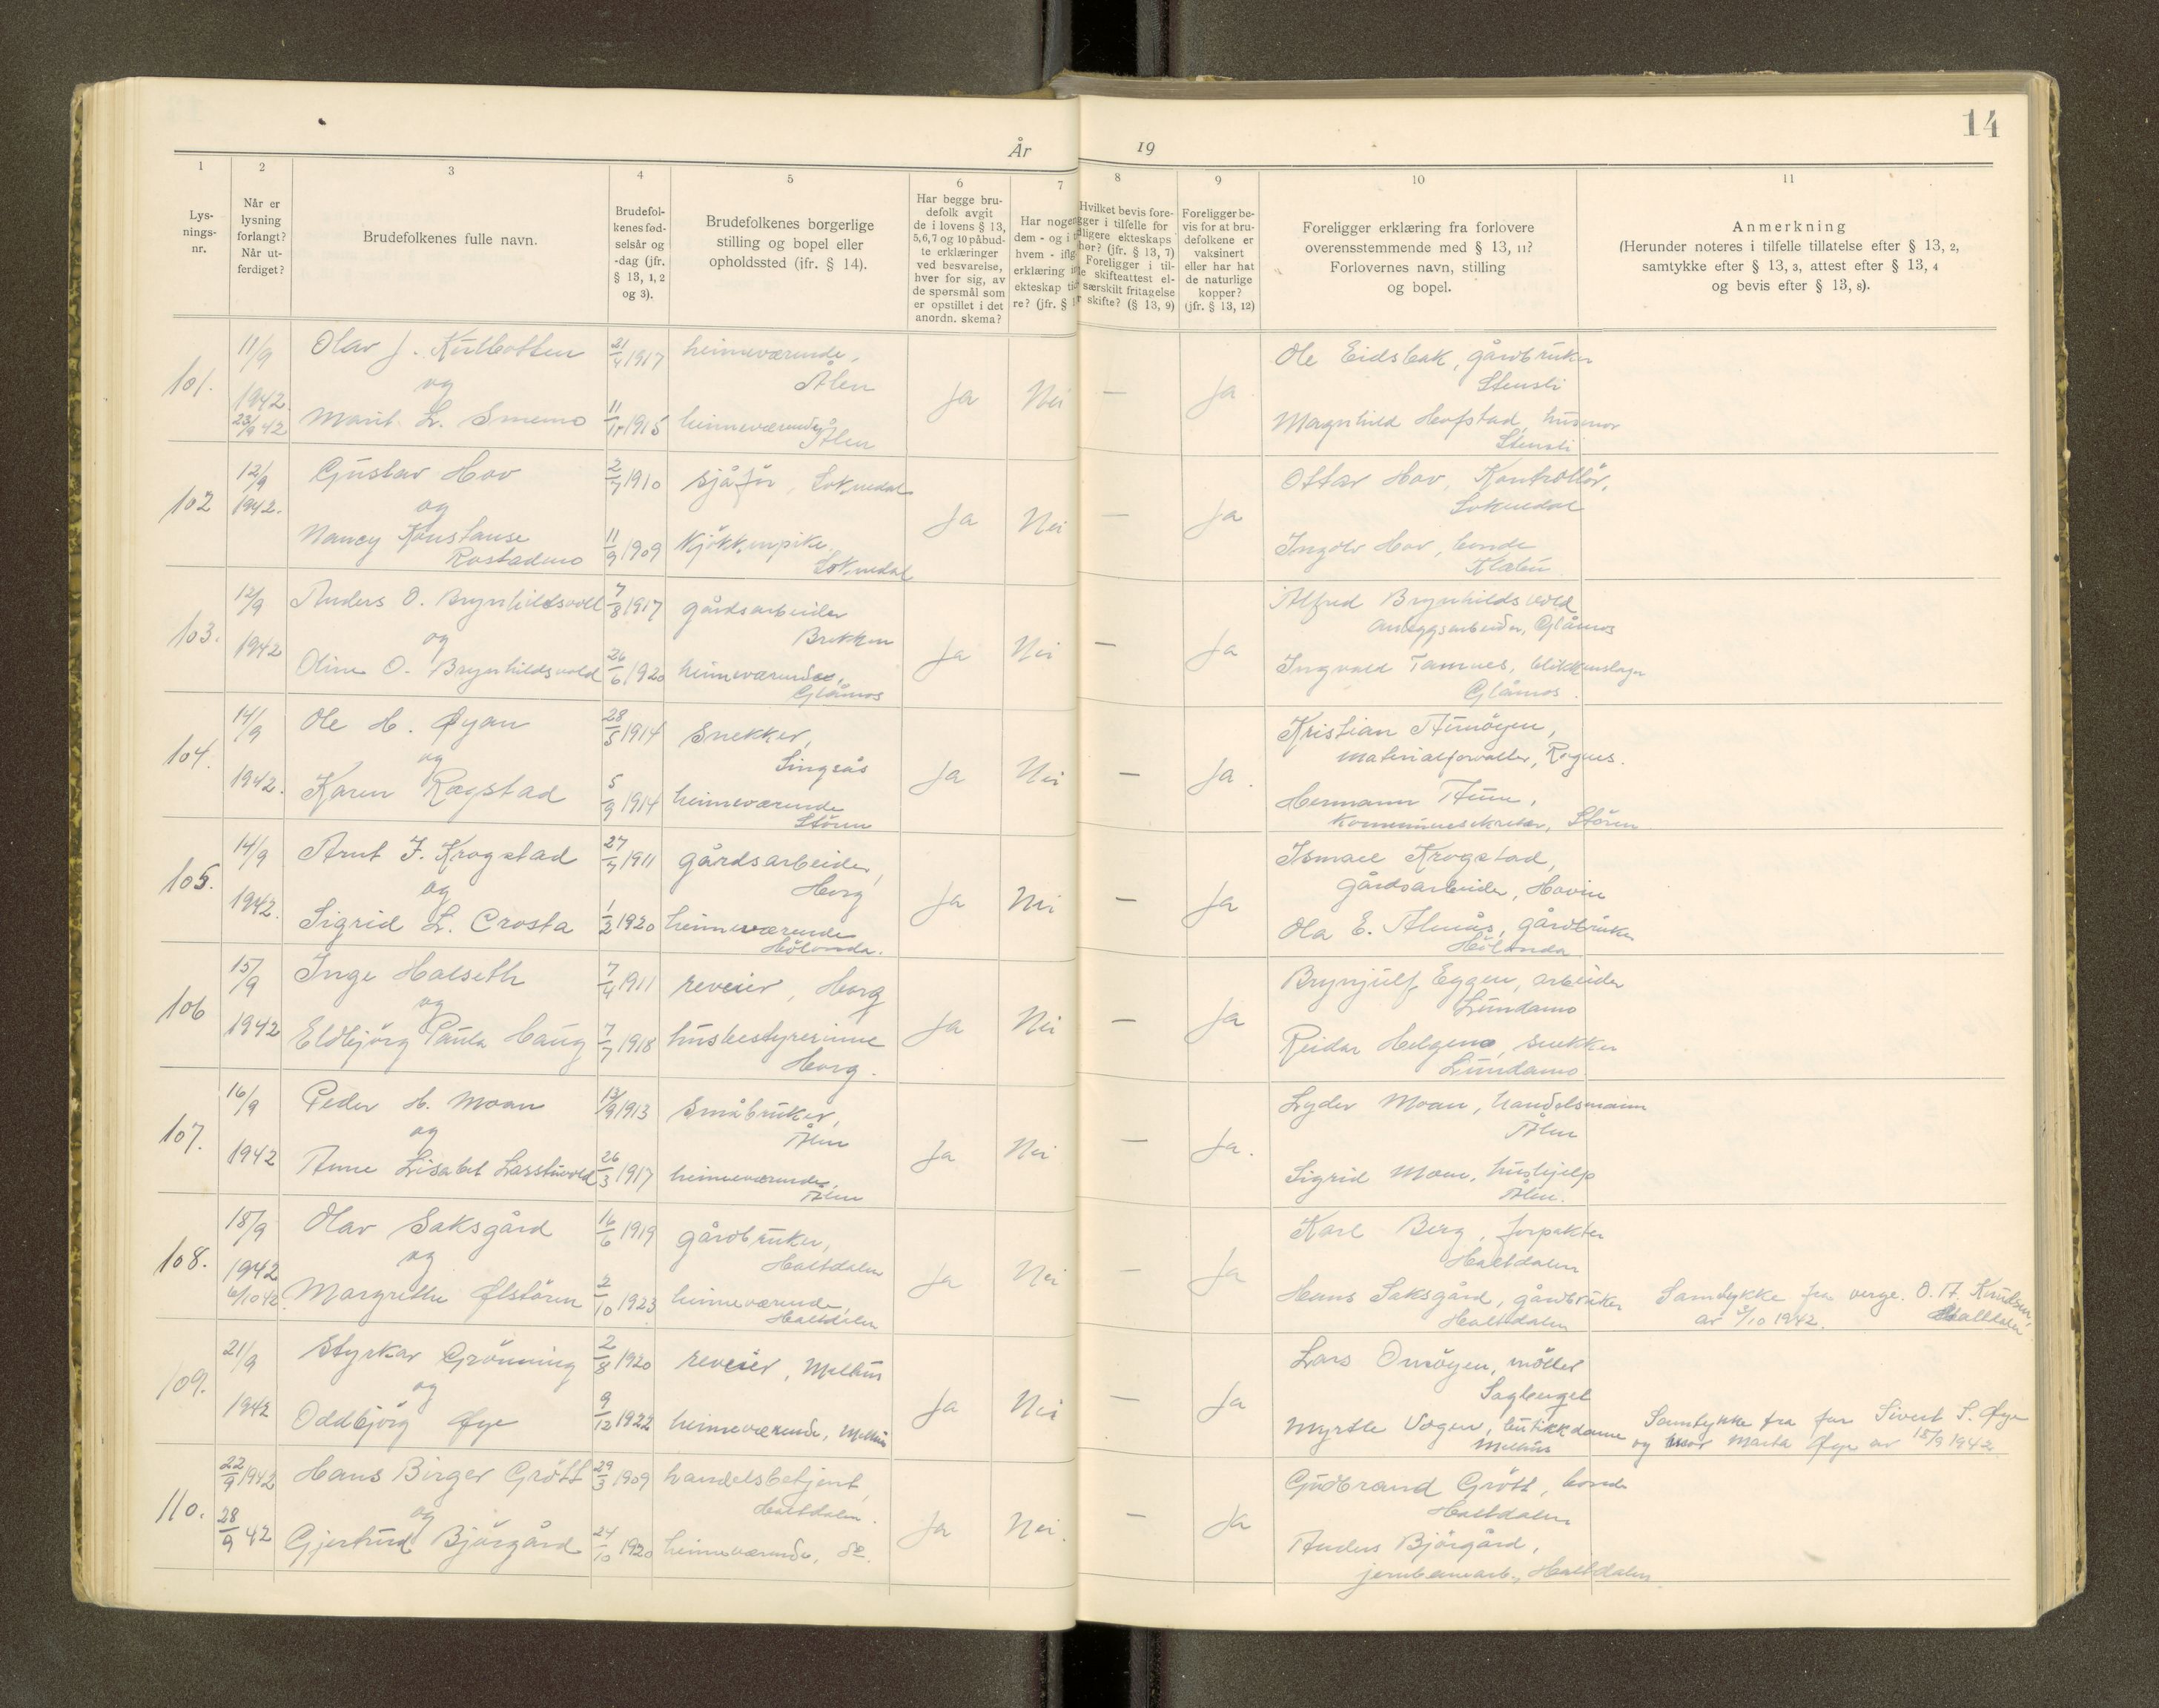 14
År 19
1 2 3 4 5 6 7 8 9 10 11
Lys-
nings-
nr.
Når er
lysning
forlangt?
Når ut-
ferdiget?
Brudefolkenes fulle navn.
Brudefol-
kenes fød-
selsår og
-dag (jfr.
§ 13, 1, 2
og 3).
Brudefolkenes borgerlige
stilling og bopel eller
opholdssted (ifr. § 14).
Har begge bru-
defolk avgit
de i lovens § 13,
5,6,7 og 10 påbud-
te erklæringer
ved besvarelse,
hver for sig, av
de spørsmål som
er opstillet i det
anordn. skema?
Har nogen
dem - og i
hvem - iflg
erklæring
ekteskap tid
re? (jfr. §
Hvilket bevis fore-
gger i tilfelle for
dligere ekteskaps
hør? (jfr. § 13, 7)
Foreligger i til-
le skifteattest el-
særskilt fritagelse
r skifte? (§ 13, 9)
Foreligger be-
vis for at bru-
defolkene er
vaksinert
eller har hat
de naturlige
kopper?
(jfr. § 13, 12)
Foreligger erklæring fra forlovere
overensstemmende med § 13, 11?
Forlovernes navn, stilling
og bopel.
Anmerkning
(Herunder noteres i tilfelle tillatelse efter § 13, 2,
samtykke efter § 13, 3, attest efter § 13, 4
og bevis efter § 13, 8).
101.
11/9
1942.
23/9 42
Olav J. Kulbotten
og
Marit L. Smemo
21/4 1917
11/11 1915
heimeværende,
Ålen
heimeværende,
Ålen
Ja Nei — Ja
Ole Eidsbak, gårdbruker
Stensli
Magnhild Hofstad, husmor
Stensli
102
12/9
1942.
Gustav Hov
og
Nancy Konstanse
Rostadmo
2/7 1910
11/9 1909
sjåfør, Soknedal
Kjøkkenpike,
Soknedal
Ja Nei — Ja
Ottar Hov, Kontrollør,
Soknedal
Ingolv Hov, bonde
Klæbu
103.
12/9
1942
Anders O. Brynhildsvold
og
Oline O. Brynhildsvold
7/8 1917
26/6 1920
gårdsarbeider
Brekken
heimeværende,
Glåmos
Ja Nei — Ja
Alfred Brynhildsvold
anleggsarbeider, Glåmos
Ingvald Tamnes, blikkenslager
Glåmos.
104.
14/9
1942.
Ole H. Øyan
og
Karen Rogstad
28/5 1914
5/9 1914
snekker,
Singsås
heimeværende
Støren
Ja Nei — Ja.
Kristian Aunøyen,
materialforvalter, Rognes.
Hermann Aune,
kommunesekretær, Støren
105.
14/9
1942.
Arnt J. Krogstad
og
Sigrid L. Crosta
27/7 1911
1/2 1920
gårdsarbeider,
Horg
heimeværende
Hølonda.
Ja Nei — Ja
Ismael Krogstad,
gårdsarbeider, Hovin
Ola E. Almås, gårdbruker
Hølonda
106
15/9
1942
Inge Halseth
og
Eldbjørg Paula Haug
7/4 1911
7/7 1918
reveier, Horg
husbestyrerinne
Horg.
Ja Nei — Ja
Brynjulf Eggen, arbeider
Lundamo
Reidar Helgemo, snekker
Lundamo
107.
16/9
1942
Peder H. Moan
og
Anne Lisabet Lasstuvold
13/9 1913
26/3 1917
småbruker,
Ålen
heimeværende,
Ålen
Ja Nei — Ja.
Lyder Moan, handelsmann
Ålen
Sigrid Moan, hushjelp
Ålen.
108.
18/9
1942
6/10 42.
Olav Saksgård
og
Margrethe Ølstøren
16/6 1919
2/10 1923
gårdbruker,
Haltdalen
heimeværende,
Haltdalen
Ja Nei — Ja
Karl Berg, forpakter
Haltdalen
Hans Saksgård, gårdbruker
Haltdalen
Samtykke fra verge. O. A. Knudsen,
av 3/10 1942. Haltdalen
109.
21/9
1942
Styrkar Grønning
og
Oddbjørg Øye
2/8 1920
9/12 1922
reveier, Melhus
heimeværende, Melhus
Ja Nei — Ja
Lars Omøyen, møller
Sagberget
Myrtle Vogen, butikkdame
Melhus
Samtykke fra far Sivert S. Øye
og mor Marta Øye av 18/9 1942
110.
22/9 1942
28/9 42
Hans Birger Grøtt
og
Gjertrud Bjørgård
29/3 1909
24/10 1920
handelsbetjent,
Haltdalen.
heimeværende, do.
Ja Nei. — Ja
Gudbrand Grøtt, bonde
Haltdalen
Anders Bjørgård,
jernbanearb., Haltdalen